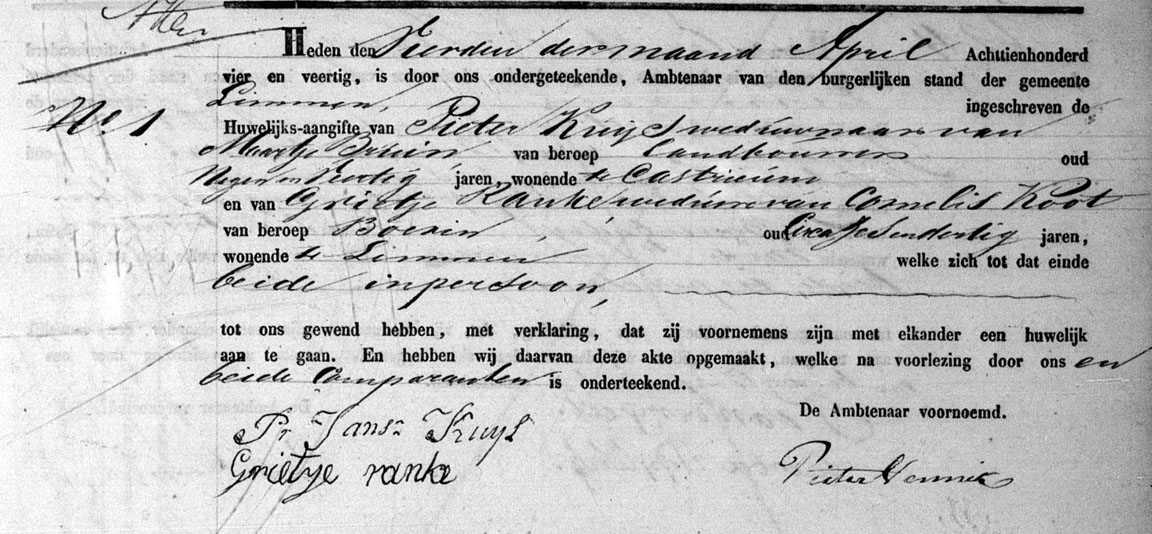 Heden den Vierden der maand April Achttienhonderd
vier en veertig, is door ons ondergeteekende, Ambtenaar van den burgerlijken stand der gemeente
Limmen, ingeschreven de
No. 1
Huwelijks-aangifte van Pieter Kuijs weduwnaar van
Maartje Bruin van beroep Landbouwer oud
Negen en Veertig jaren, wonende te Castricum
en van Grietje Ranke weduwe van Cornelis Koot
van beroep Boerin, oud Circa Zes en dertig jaren,
wonende te Limmen welke zich tot dat einde
beide in persoon,
tot ons gewend hebben, met verklaring, dat zij voornemens zijn met elkander een huwelijk
aan te gaan. En hebben wij daarvan deze akte opgemaakt, welke na voorlezing door ons en
beide Comparanten is onderteekend.
De Ambtenaar voornoemd.
Pr Jansz Kuys
Grietje ranke
Pieter Nennis